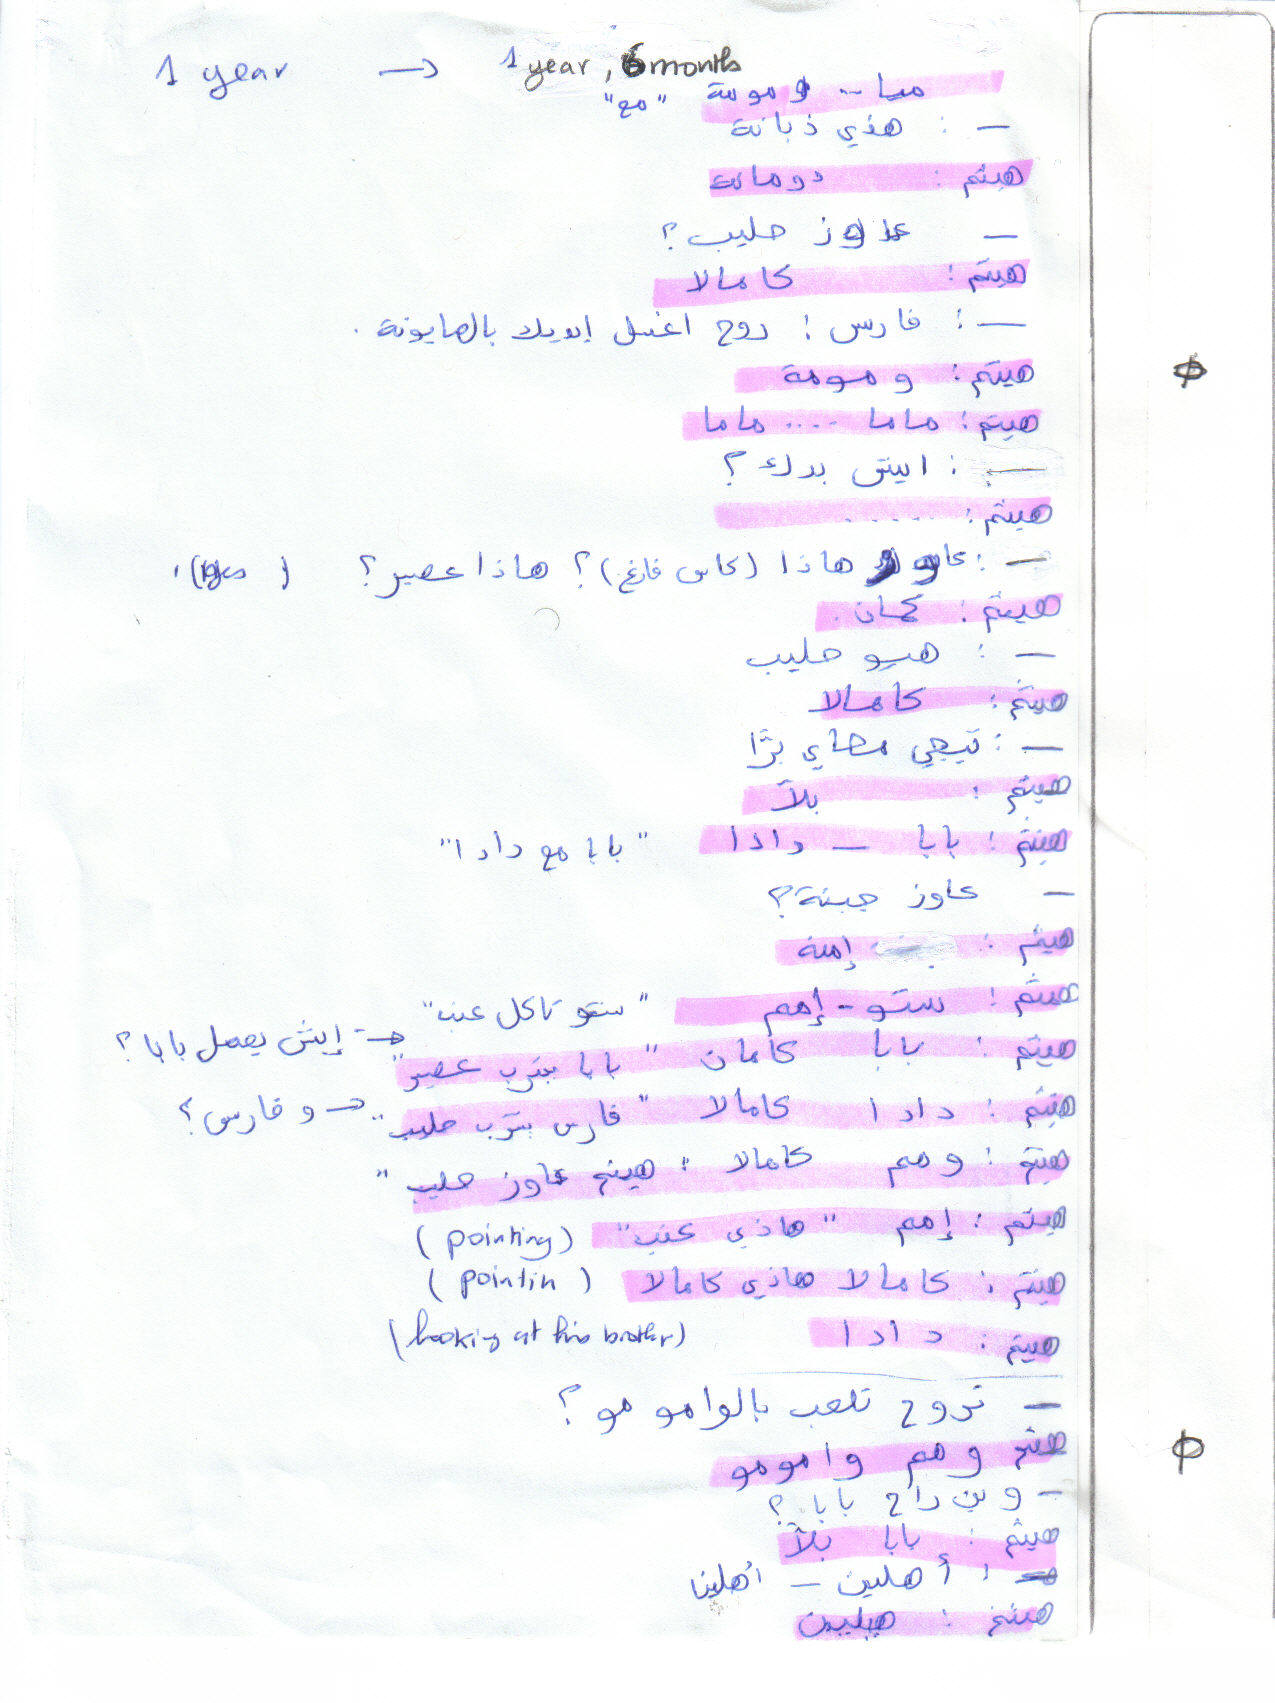 1 year → 1 year, 6 months
ميا -- و مومة "مع"
— : هذي ذبانة
هيثم : دومانة
— عاوز حليب؟
هيثم : كامالا
— : فارس : روح اغسل إيديك بالصابونة .
هيثم : ومومة
هيثم : ماما .... ماما
— : ايش بدك ؟
هيثم : .....
— : عاوز هاذا (كاس فارغ) ؟ هاذا عصير ؟ ( )
هيثم : كمان .
— : هيو حليب
هيثم : كامالا
— : تيجي معاي برّا
هيثم : بلاّ
هيثم : بابا — دادا "بابا مع دادا"
— عاوز جبنة ؟
هيثم : إمنة
هيثم : ستو - إمم "ستو تاكل عنب"
هيثم : بابا كامان "بابا بشرب عصير" ← إيش يعمل بابا ؟
هيثم : دادا كامالا "فارس بشرب حليب" ← و فارس ؟
هيثم : ومم كامالا "هيثم عاوز حليب"
هيثم : إمم "هاذي عنب" (pointing)
هيثم : كامالا هاذي كامالا (pointin)
هيثم : دادا (looking at his brother)
— تروح تلعب بالوامو مو ؟
هيثم ومم وامومو
— وين راح بابا ؟
هيثم : بابا بلاّ
— : أهلين — أهلينا
هيثم : هيليين